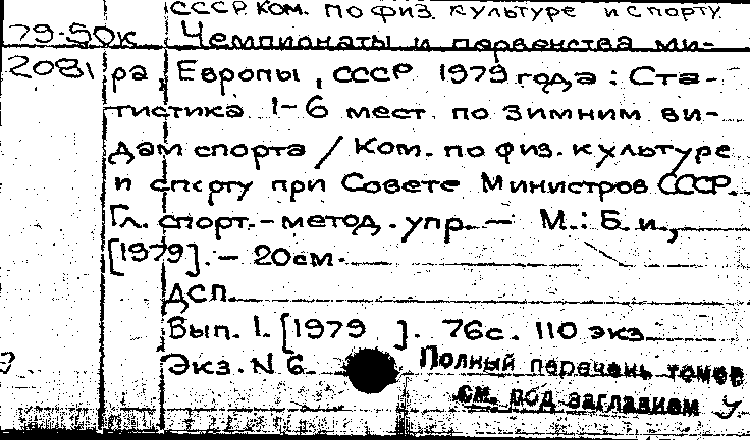 СССР. Ком. по физ. культуре и спорту.
79-50к Чемпионаты и первенства ми-
2081 ра, Европы, СССР 1979 года: Ста-
тистика 1-6 мест. по зимним ви-
дам спорта / Ком. по физ. культуре
и спорту при Совете Министров СССР.
Гл. спорт.-метод. упр. — М.: Б. и.,
[1979]. — 20см.
ДСП.
Вып. 1. [1979 ]. 76с. 110 экз.
Экз. N 6. Полный перечень томов
см. под заглавием